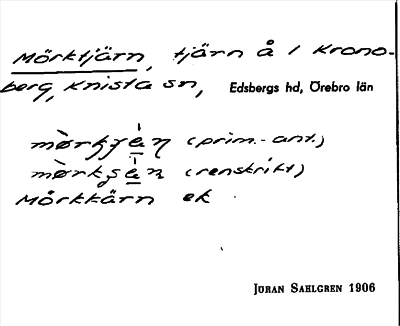 Mörktjärn, tjärn å / Krono-
berg, Knista sn, Edsbergs hd, Örebro län
(prim.-ant.)
(renskrikt)
Mörkkärn ek
JÖRAN SAHLGREN 1906